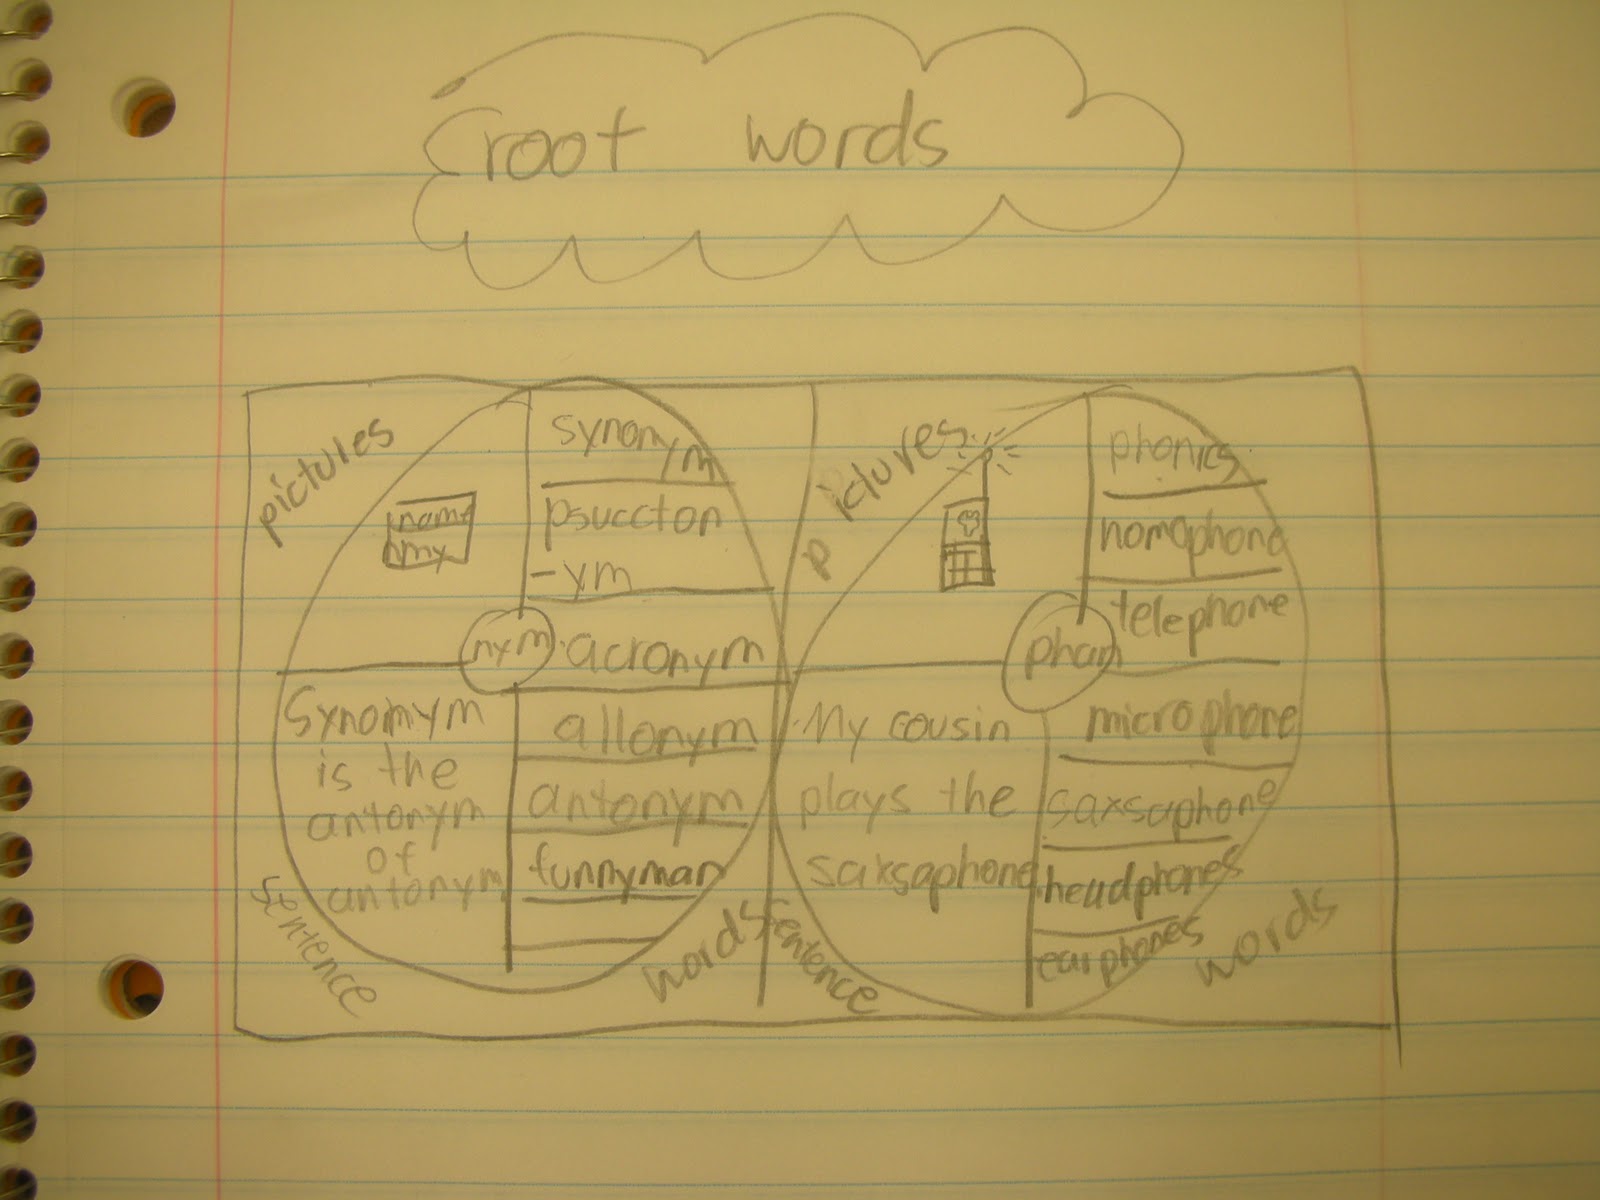 root words
pictures
name
my
nym
synonym
psuccton
-ym
acronym
allonym
antonym
funnyman
words
Synomym
is the
antonym
of
antonym
sentence
pictures
phonics
homophone
telephone
microphone
saxsaphone
headphones
earphones
words
My cousin
plays the
saxsaphone
sentence